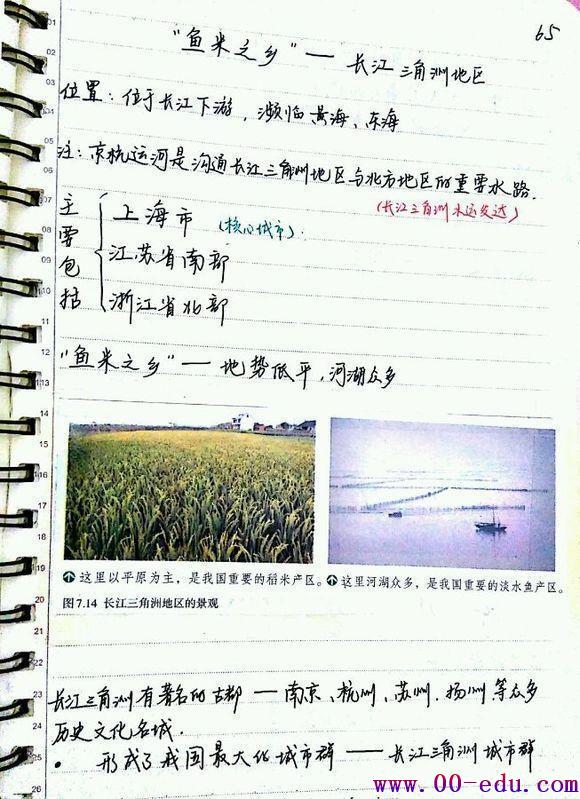 65
"鱼米之乡" — 长江三角洲地区
位置：位于长江下游，濒临黄海、东海
注：京杭运河是沟通长江三角洲地区与北方地区的重要水路.
(长江三角洲水运发达)
主要包括
上海市 (核心城市).
江苏省南部
浙江省北部
"鱼米之乡" — 地势低平，河湖众多
这里以平原为主，是我国重要的稻米产区。
这里河湖众多，是我国重要的淡水鱼产区。
图7.14 长江三角洲地区的景观
长江三角洲有著名的古都 — 南京、杭州、苏州.扬州等众多
历史文化名城.
• 形成了我国最大化城市群 — 长江三角洲城市群
www.00-edu.com